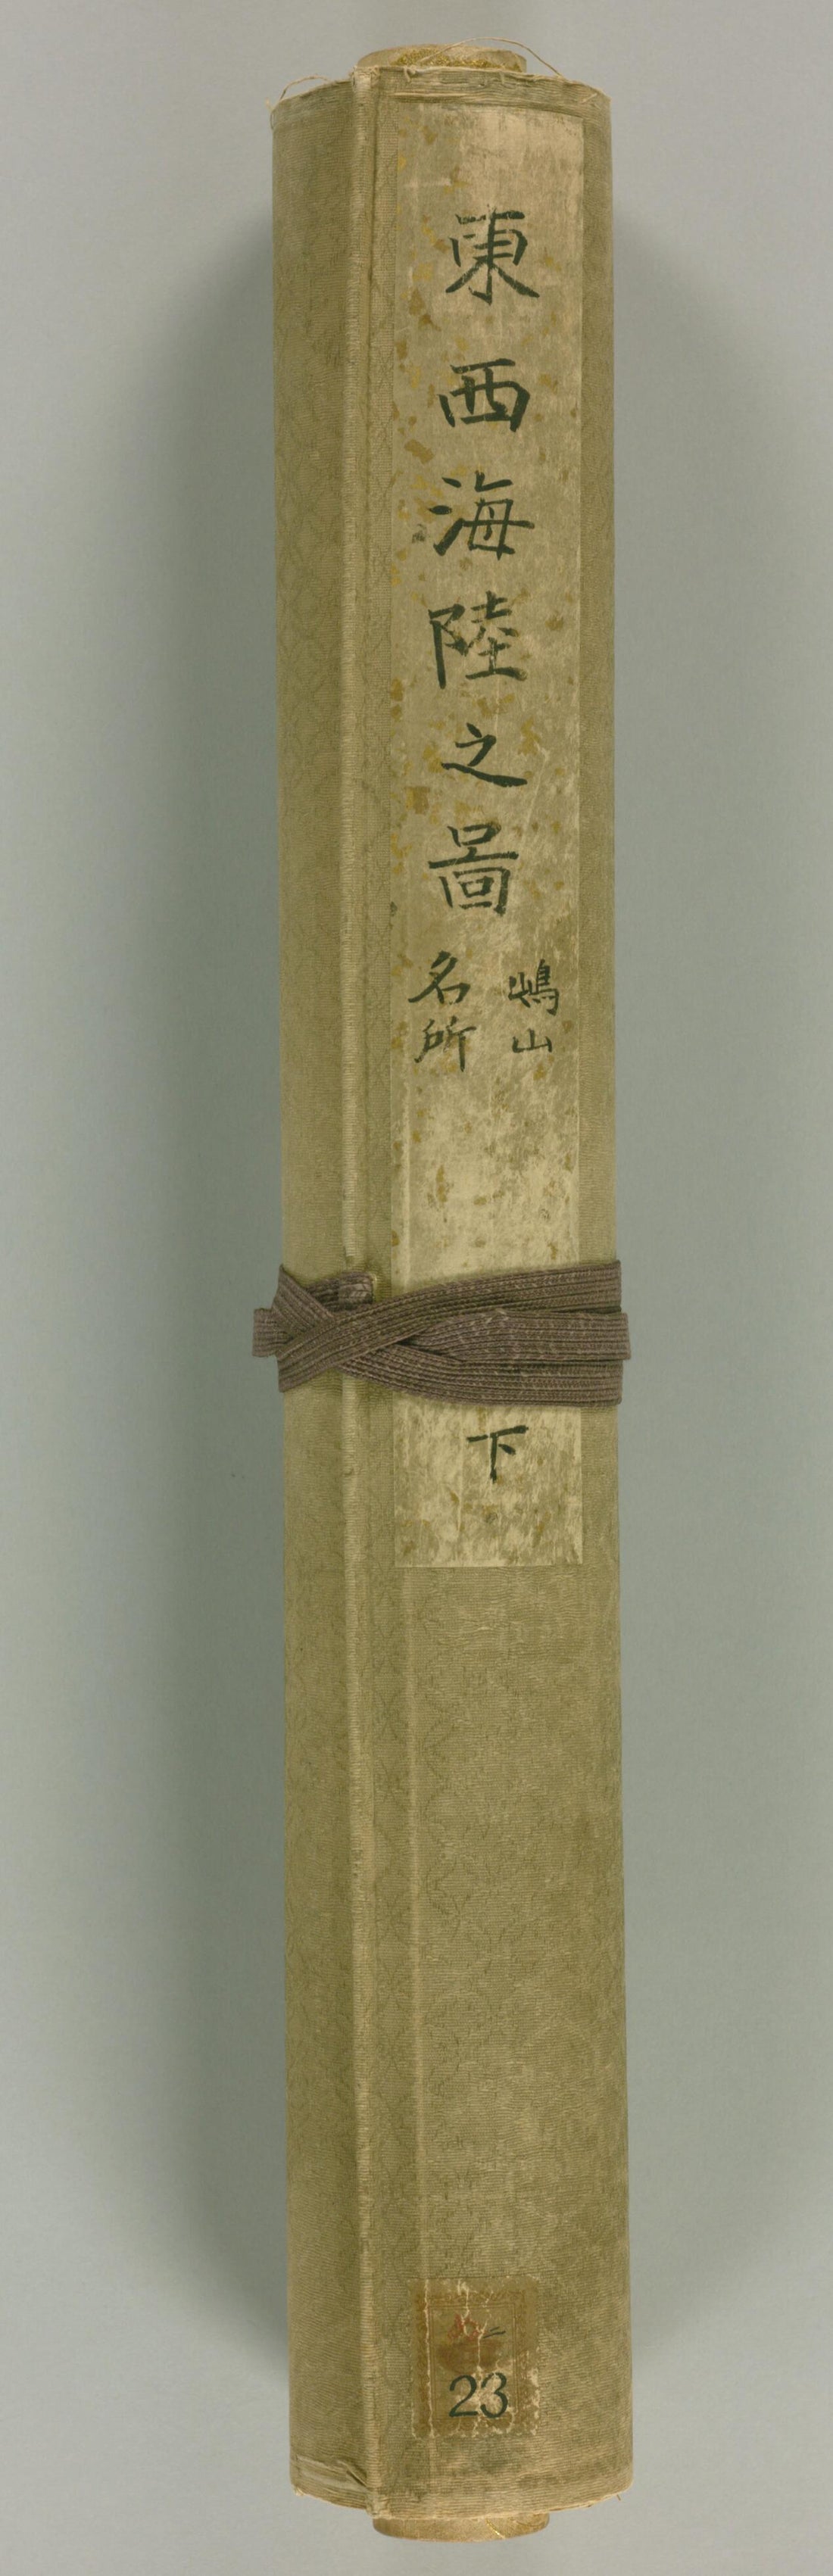 東西海陸之啚
嶋山
名所
下
23